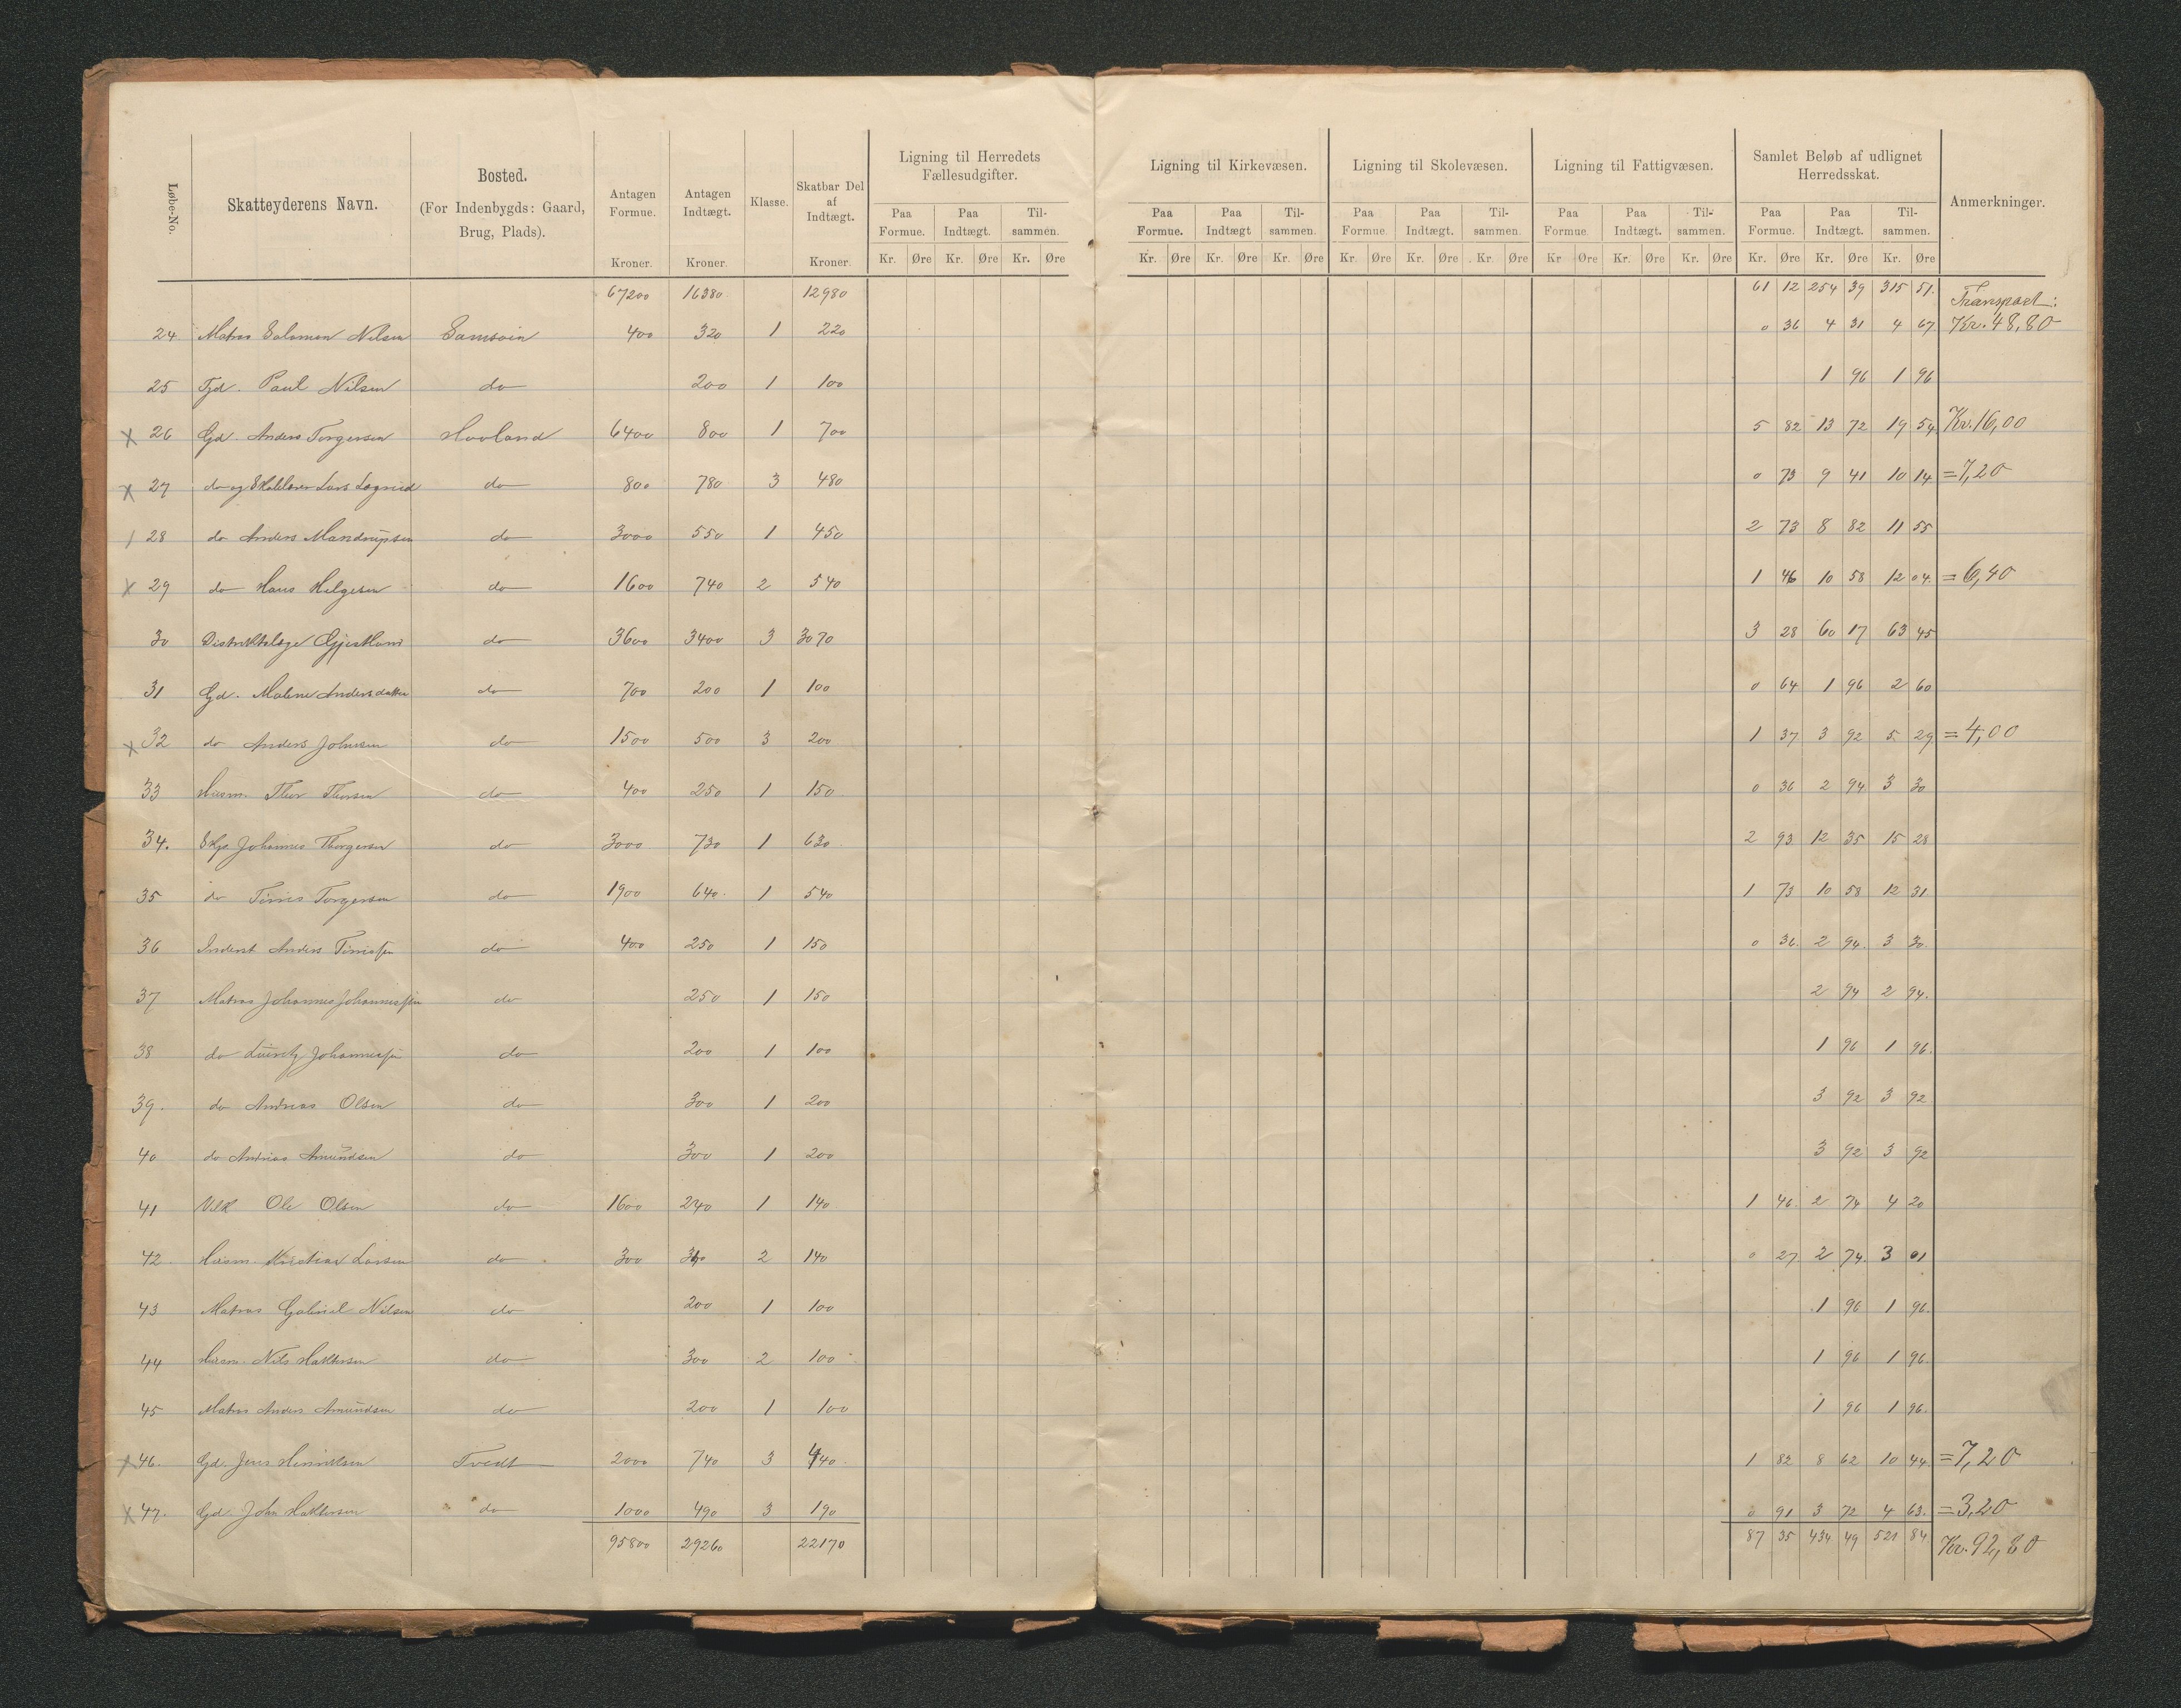 Løbe-No. Skatteyderens Navn. Bosted. (For Indenbygds: Gaard, Brug, Plads). Antagen Formue. Kroner. Antagen Indtægt. Kroner. Klasse. Skatbar Del af Indtægt. Kroner. Ligning til Herredets Fællesudgifter. Ligning til Kirkevæsen. Ligning til Skolevæsen. Ligning til Fattigvæsen. Samlet Beløb af udlignet Herredsskat. Anmerkninger.
Paa Formue. Paa Indtægt. Til-sammen. Paa Formue. Paa Indtægt Til-sammen. Paa Formue Paa Indtægt. Til-sammen. Paa Formue Paa Indtægt. Til-sammen. Paa Formue. Paa Indtægt. Til-sammen.
Kr. Øre Kr. Øre Kr. Øre Kr. Øre Kr. Øre Kr. Øre Kr. Øre Kr. Øre Kr. Øre Kr. Øre Kr. Øre Kr. Øre Kr. Øre Kr. Øre Kr. Øre
67200 16380 12980 61 12 254 39 315 51. Transport:
24 Matros Salomon Nilsen Samsoin 400 320 1 220 0 36 4 31 4 67 Kr. 48,80
25 Tjd. Paul Nilsen do 200 1 100 1 96 1 96
x 26 Gd. Anders Torgersen Hovland 6400 800 1 700 5 82 13 72 19 54 Kr. 16,00
x 27 do og Skolelærer Lars Løgreid do 800 780 3 480 0 73 9 41 10 14 = 7,20
/ 28 do Anders Mandrupsen do 3000 550 1 450 2 73 8 82 11 55
x 29 do Hans Helgesen do 1600 740 2 540 1 46 10 58 12 04. = 6,40
30 Distriktslæge do 3600 3400 3 3070 3 28 60 17 63 45
31 Gd. Malene Andersdatter do 700 200 1 100 0 64 1 96 2 60
x 32 do Anders Johnsen do 1500 500 3 200 1 37 3 92 5 29 = 4,00
33 Husm. Thor Thorsen do 400 250 1 150 0 36 2 94 3 30
34. Johannes Thorgersen do 3000 730 1 630 2 93 12 35 15 28
35 do Tønnes Torgersen do 1900 640 1 540 1 73 10 58 12 31
36 Inderst Anders Tønnesen do 400 250 1 150 0 36. 2 94. 3 30.
37 Matros Johannes Johannessen do 250 1 150 2 94 2 94.
38 do Lauritz Johannessen do 200 1 100 1 96 1 96.
39. do Andreas Olsen do 300 1 200 3 92 3 92
40 do Andreas Amundsen do 300 1 200 3 92 3 92
41 Ole Olsen do 1600 240 1 140 1 46. 2 74 4 20
42 Husm. Kristian Larsen do 300 340 2 140 0 27. 2 74. 3 01
43 Matros Gabriel Nilsen do 200 1 100 1 96 1 96.
44 Husm. Nils Halttorsen do 300 2 100 1 96 1 96.
45 Matros Anders Amundsen do 200 1 100 1 96 1 96.
x 46. Gd. Jens Henriksen Tvedt 2000 740 3 440 1 82 8 62 10 44. = 7,20
x 47. Gd. John do 1000 490 3 190 0 91 3 72 4 63. = 3,20
95800 29260 22170 87 35 434 49 521 84. Kr. 92,80